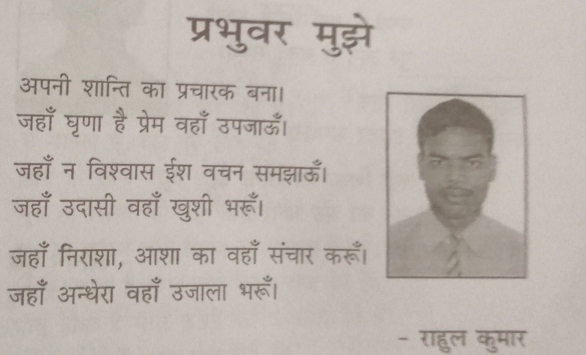 प्रभुवर मुझे
अपनी शान्ति का प्रचारक बना।
जहाँ घृणा है प्रेम वहाँ उपजाऊँ।
जहाँ न विश्वास ईश वचन समझाऊँ।
जहाँ उदासी वहाँ खुशी भरूँ।
जहाँ निराशा, आशा का वहाँ संचार करूँ।
जहाँ अन्धेरा वहाँ उजाला भरूँ।
- राहुल कुमार